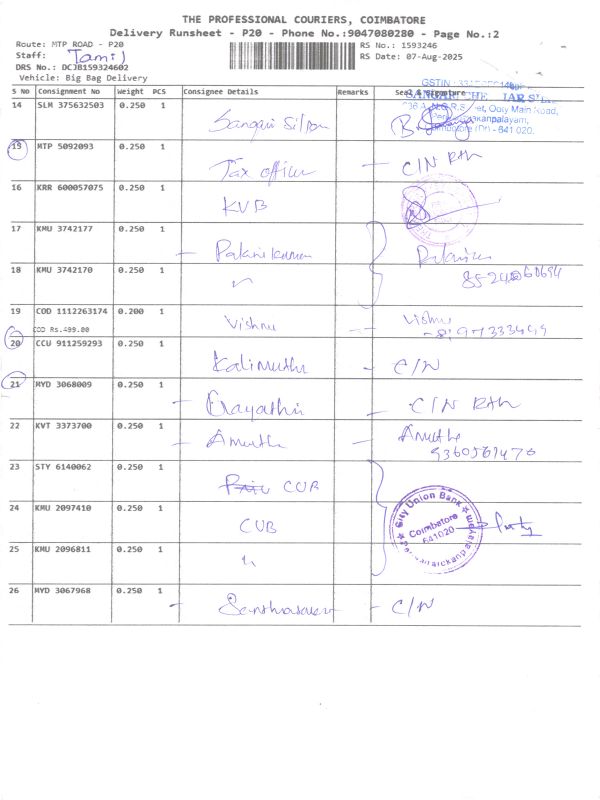 THE PROFESSIONAL COURIERS, COIMBATORE
Delivery Runsheet - P20 - Phone No.:9047080280 - Page No.:2
Route: MTP ROAD - P20
RS No.: 1593246
Staff: Tamil
RS Date: 07-Aug-2025
DRS No.: DCJB159324602
Vehicle: Big Bag Delivery
S No Consignment No Weight PCS Consignee Details Remarks Seal & Signature
14 SLM 375632503 0.250 1
Main Road,
641 020
15 MTP 5092093 0.250 1
Tax office - C/N
16 KRR 600057075 0.250 1
KVB
17 KMU 3742177 0.250 1
- Palanikumar
18 KMU 3742170 0.250 1
19 COD 1112263174 0.200 1
COD Rs.499.00
Vishnu - Vishnu
20 CCU 911259293 0.250 1
Kalimuthu - C/N
21 MYD 3068009 0.250 1
- Gayathri - C/N
22 KVT 3373700 0.250 1
- Amutha - Amutha
9360569470
23 STY 6140062 0.250 1
CUB
24 KMU 2097410 0.250 1
CUB
City Union Bank
Coimbatore
641020
25 KMU 2096811 0.250 1
26 MYD 3067968 0.250 1
- C/N